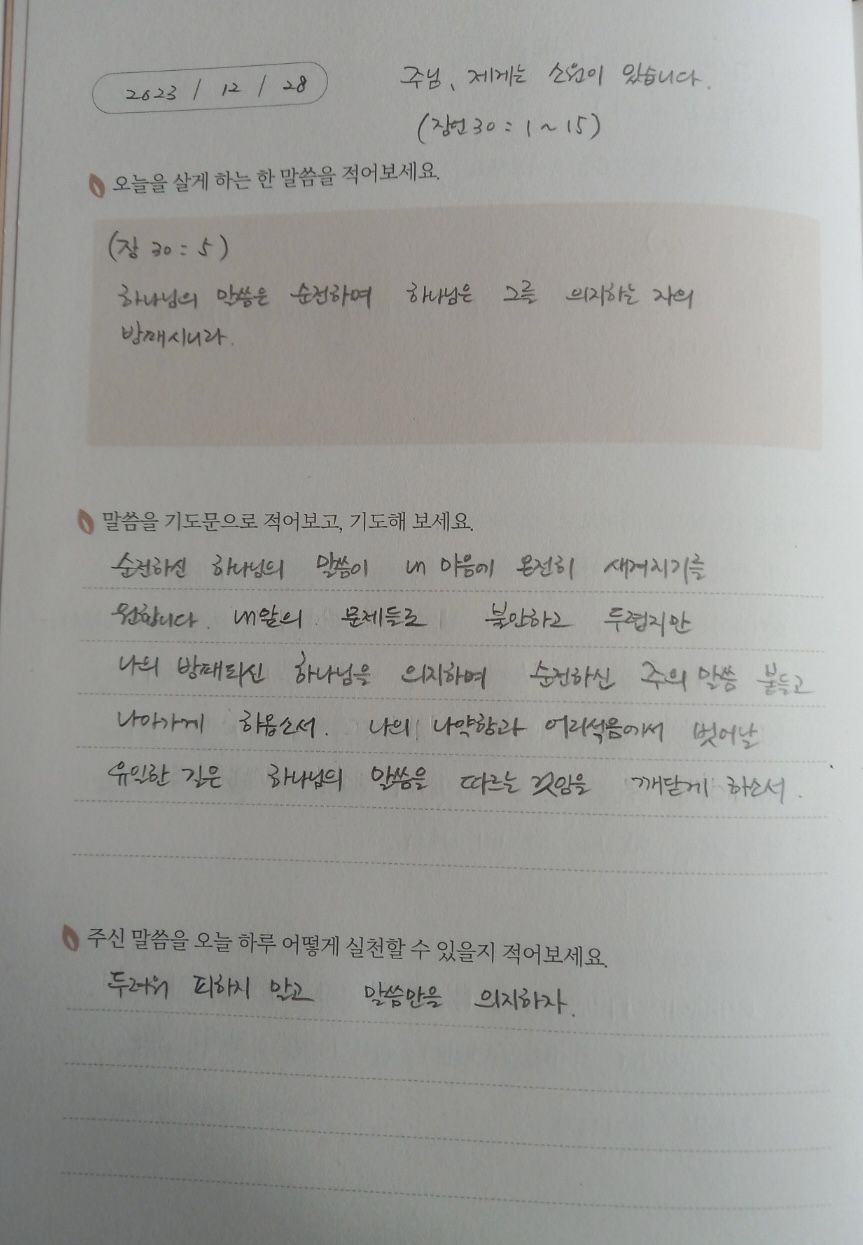 2023 / 12 / 28
주님, 제게는 소원이 있습니다.
(잠언 30 : 1 ~ 15)
오늘을 살게 하는 한 말씀을 적어보세요.
(잠 30 : 5)
하나님의 말씀은 순전하며 하나님은 그를 의지하는 자의
방패시니라.
말씀을 기도문으로 적어보고, 기도해 보세요.
순전하신 하나님의 말씀이 내 마음에 온전히 새겨지기를
원합니다. 내앞의 문제들로 불안하고 두렵지만
나의 방패되신 하나님을 의지하며 순전하신 주의 말씀 붙들고
나아가게 하옵소서. 나의 나약함과 어리석음에서 벗어날
유일한 길은 하나님의 말씀을 따르는 것임을 깨닫게 하소서.
주신 말씀을 오늘 하루 어떻게 실천할 수 있을지 적어보세요.
두려워 피하지 말고 말씀만을 의지하자.